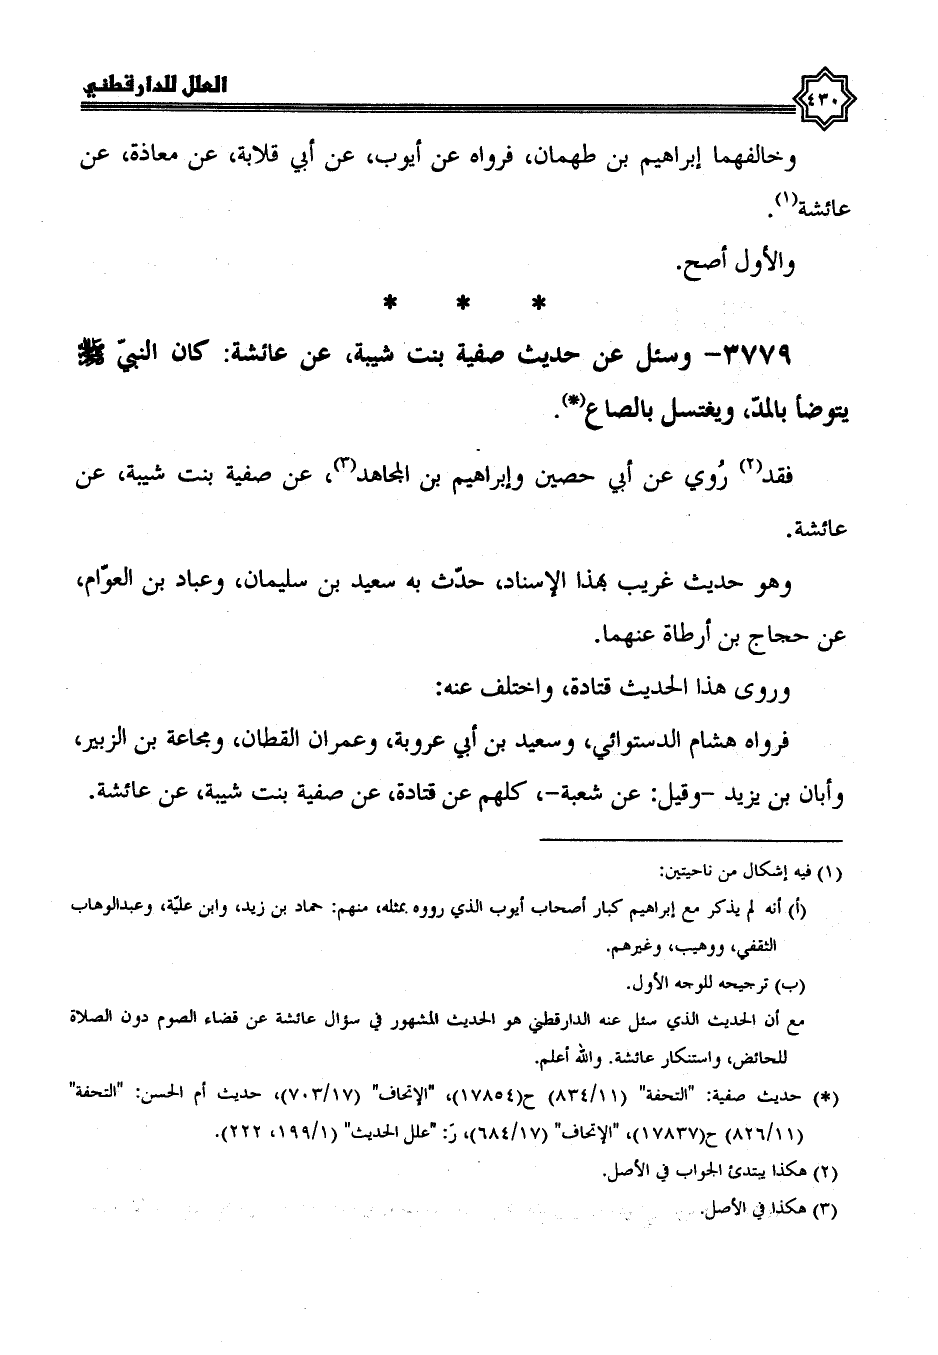 العلل للدارقطني
٤٣٠
وخالفهما إبراهيم بن طهمان، فرواه عن أيوب، عن أبي قلابة، عن معاذة، عن
عائشة(١).
والأول أصح.
* * *
٣٧٧٩- وسئل عن حديث صفية بنت شيبة، عن عائشة: كان النبيّ ﷺ
يتوضأ بالمدّ، ويغتسل بالصاع(*).
فقد(٢) رُوي عن أبي حصين وإبراهيم بن المجاهد(٣)، عن صفية بنت شيبة، عن
عائشة.
وهو حديث غريب بهذا الإسناد، حدّث به سعيد بن سليمان، وعباد بن العوّام،
عن حجاج بن أرطاة عنهما.
وروى هذا الحديث قتادة، واختلف عنه:
فرواه هشام الدستوائي، وسعيد بن أبي عروبة، وعمران القطان، ومجاعة بن الزبير،
وأبان بن يزيد -وقيل: عن شعبة-، كلهم عن قتادة، عن صفية بنت شيبة، عن عائشة.
(١) فيه إشكال من ناحيتين:
(أ) أنه لم يذكر مع إبراهيم كبار أصحاب أيوب الذي رووه بمثله، منهم: حماد بن زيد، وابن عليّة، وعبدالوهاب
الثقفي، ووهيب، وغيرهم.
(ب) ترجيحه للوجه الأول.
مع أن الحديث الذي سئل عنه الدارقطني هو الحديث المشهور في سؤال عائشة عن قضاء الصوم دون الصلاة
للحائض، واستنكار عائشة. والله أعلم.
(*) حديث صفية: "التحفة" (٨٣٤/١١) ح(١٧٨٥٤)، "الإتحاف" (٧٠٣/١٧)، حديث أم الحسن: "التحفة"
(٨٢٦/١١) ح(١٧٨٣٧)، "الإتحاف" (٦٨٤/١٧)، رَ: "علل الحديث" (١٩٩/١، ٢٢٢).
(٢) هكذا يبتدئ الجواب في الأصل.
(٣) هكذا في الأصل.